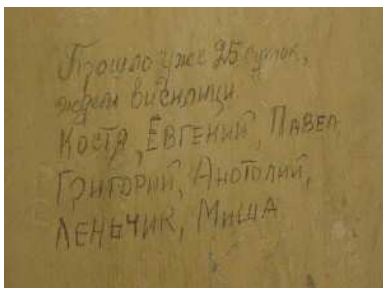 Прошло уже 25 суток,
ждем виселицы.
Костя, Евгений, Павел,
Григорий, Анотолий,
Леньчик, Миша